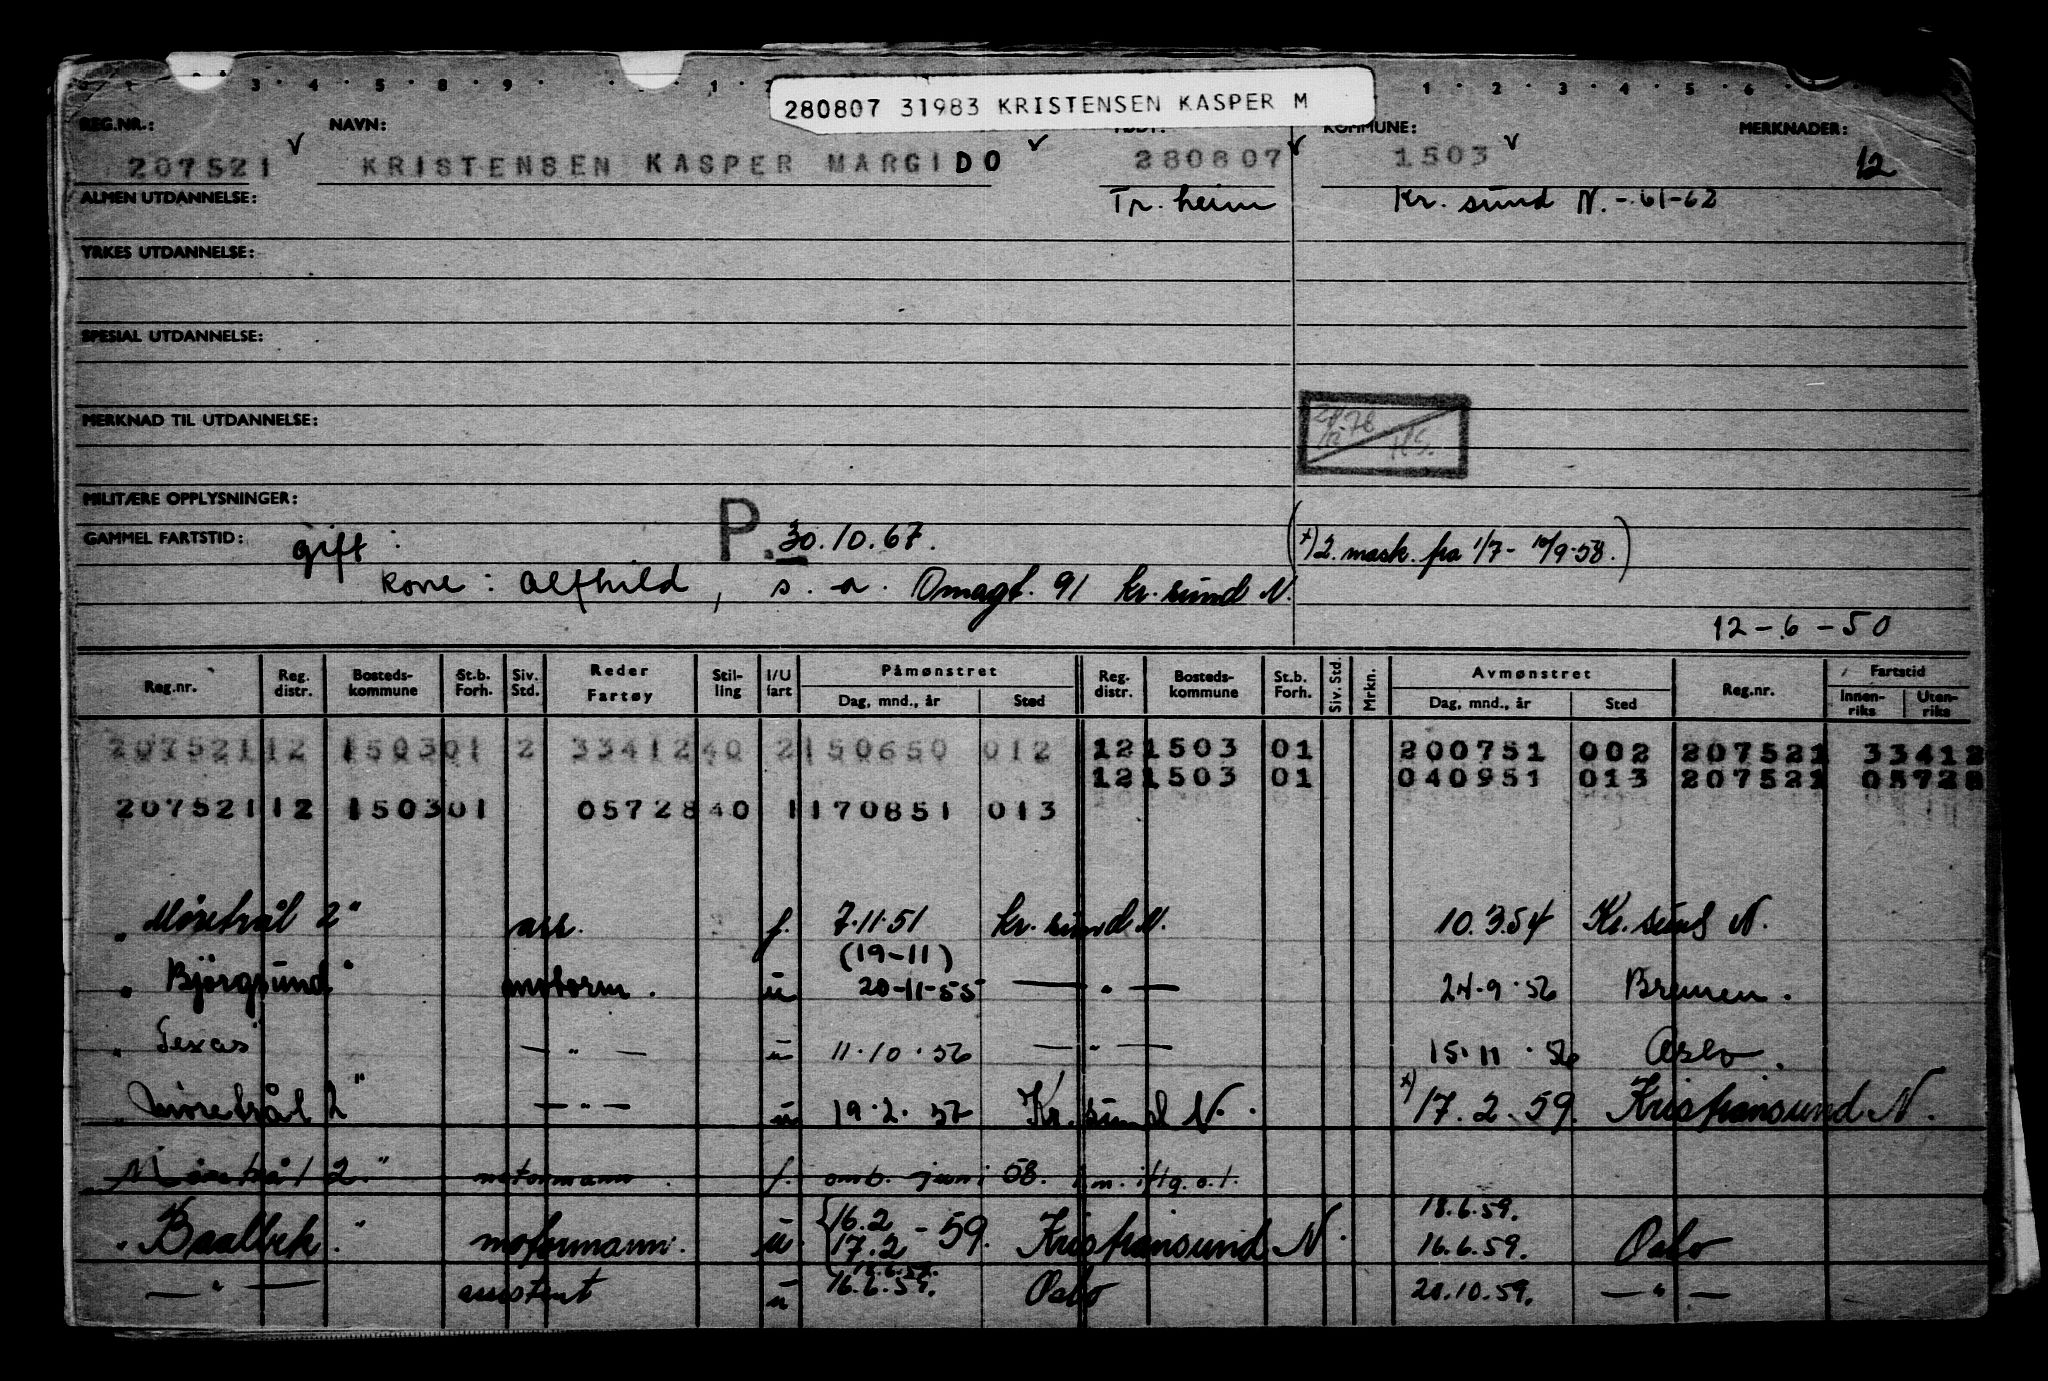 280807 31983 KRISTENSEN KASPER M
REG.NR.: NAVN: KOMMUNE: MERKNADER:
207521 KRISTENSEN KASPER MARGIDO 280807 1503 12
ALMEN UTDANNELSE: Tr. heim Kr. sund N. - 61-62
YRKES UTDANNELSE:
SPESIAL UTDANNELSE:
MERKNAD TIL UTDANNELSE:
MILITÆRE OPPLYSNINGER:
GAMMEL FARTSTID: gift : P. 30.10.67. (x) 2. mask. fra 1/7 - 10/9-58.)
kone : Alfhild, s. a. Omagt. 91 Kr. sund N.
12-6-50
Reg.nr. Reg. distr. Bosteds- kommune St.b. Forh. Siv. Std. Reder Fartøy Stil- ling I/U fart Påmønstret Dag, mnd., år Sted Reg. distr. Bosteds- kommune St.b. Forh. Siv. Std. Mrkn. Avmønstret Dag, mnd., år Sted Reg.nr. Fartstid Innen- riks Uten- riks
207521 12 1503 01 2 33412 40 2 150650 012 12 1503 01 200751 002 207521 33412
12 1503 01 040951 013 207521 05728
207521 12 1503 01 05728 40 1 170851 013
"Møretrål 2" ass. f. 7.11.51 Kr. sund N. 10.3.54 Kr. sund N.
(19-11)
"Bjørgsund" motorm. u 20-11-55 — " — 24.9.56 Bremen.
"Texas" — " — u 11.10.56 — " — 15.11.56 Oslo.
"Møretrål 2" — " — u 19.2.57 Kr. sund N. x) 17.2.59. Kristiansund N.
"Møretrål 2." motormann f. omb. juni 58.
"Baalbek." motormann. u. {16.2 17.2 - 59. Kristiansund N. 18.6.59. 16.6.59. Oslo
— " — assistent u 16.6.59. Oslo 20.10.59. — " —